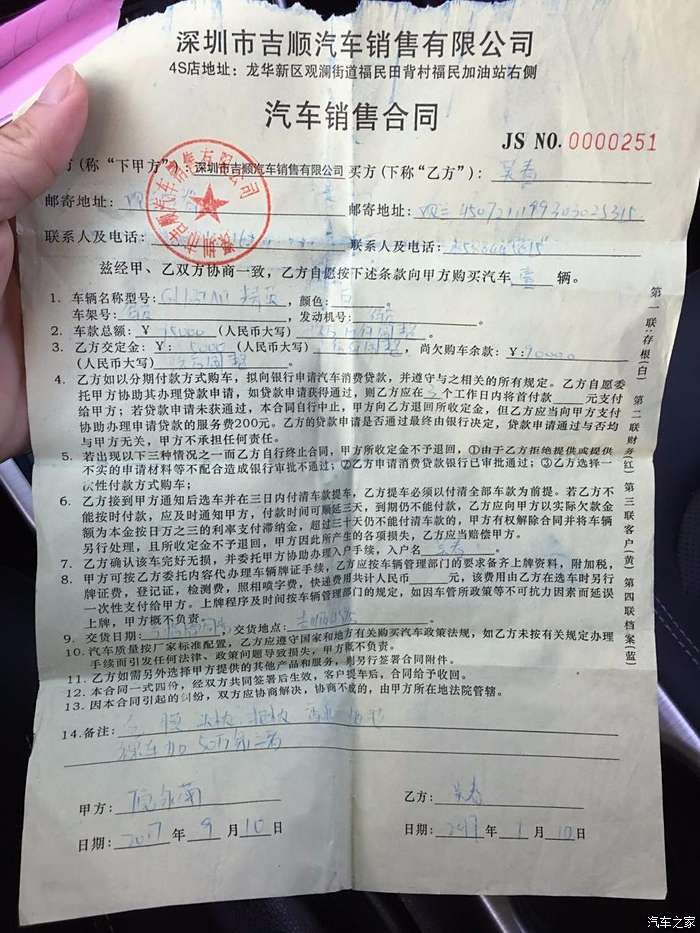 深圳市吉顺汽车销售有限公司
4S店地址：龙华新区观澜街道福民田背村福民加油站右侧
汽车销售合同
JS NO. 0000251
方(称“下甲方”)：深圳市吉顺汽车销售有限公司 买方(下称“乙方”)：
邮寄地址： 邮寄地址：
联系人及电话： 联系人及电话：
兹经甲、乙双方协商一致，乙方自愿按下述条款向甲方购买汽车壹辆。
1. 车辆名称型号： ，颜色：白。
车架号： 发动机号： 。
2. 车款总额：￥ (人民币大写) 。
3. 乙方交定金：￥：5000 (人民币大写) ，尚欠购车余款：￥：
(人民币大写) 。
4. 乙方如以分期付款方式购车，拟向银行申请汽车消费贷款，并遵守与之相关的所有规定。乙方自愿委
托甲方协助其办理贷款申请，如贷款申请获得通过，则乙方应在 个工作日内将首付款 元支付
给甲方；若贷款申请未获通过，本合同自行中止，甲方向乙方退回所收定金，但乙方应当向甲方支付
协助办理申请贷款的服务费200元。乙方的贷款申请是否通过最终由银行决定，贷款申请通过与否均
与甲方无关，甲方不承担任何责任。
5. 若出现以下三种情况之一而乙方自行终止合同，甲方所收定金不予退回，①由于乙方拒绝提供或提供
不实的申请材料等不配合造成银行审批不通过；②乙方申请消费贷款银行已审批通过；③乙方选择一
次性付款方式购车；
6. 乙方接到甲方通知后选车并在三日内付清车款提车，乙方提车必须以付清全部车款为前提。若乙方不
能按时付款，应及时通知甲方，付款时间可顺延三天，到期仍不能付款，乙方应向甲方以实际欠款金
额为本金按日万之三的利率支付滞纳金，超过三十天仍不能付清车款的，甲方有权解除合同并将车辆
另行处理，且所收定金不予退回，甲方因此所产生的各项损失，乙方应当赔偿甲方。
7. 乙方确认该车完好无损，并委托甲方协助办理入户手续，入户名 。
8. 甲方可按乙方委托内容代办理车辆牌证手续，乙方应按车辆管理部门的要求备齐上牌资料，附加税，
牌证费，登记证，检测费，照相喷字费，快递费用共计人民币 元，该费用由乙方在选车时另行
一次性支付给甲方。上牌程序及时间按车辆管理部门的规定，如因车管所政策等不可抗力因素而延误
上牌，甲方概不负责。
9. 交货日期： ，交货地点： 。
10. 汽车质量按厂家标准配置，乙方应遵守国家和地方有关购买汽车政策法规，如乙方未按有关规定办理
手续而引发任何法律、政策问题导致损失，甲方概不负责。
11. 乙方如需另外选择甲方提供的其他产品和服务，则另行签署合同附件。
12. 本合同一式四份，经双方共同签署后生效，客户提车后，合同给予收回。
13. 因本合同引起的纠纷，双方应协商解决，协商不成的，由甲方所在地法院管辖。
14.备注：
甲方： 乙方：
日期：2017年9月10日 日期： 年 月10日
第一联：存根(白) 第二联财务(红) 第三联客户(黄) 第四联档案(蓝)
深圳市吉顺汽车销售有限公司
汽车之家